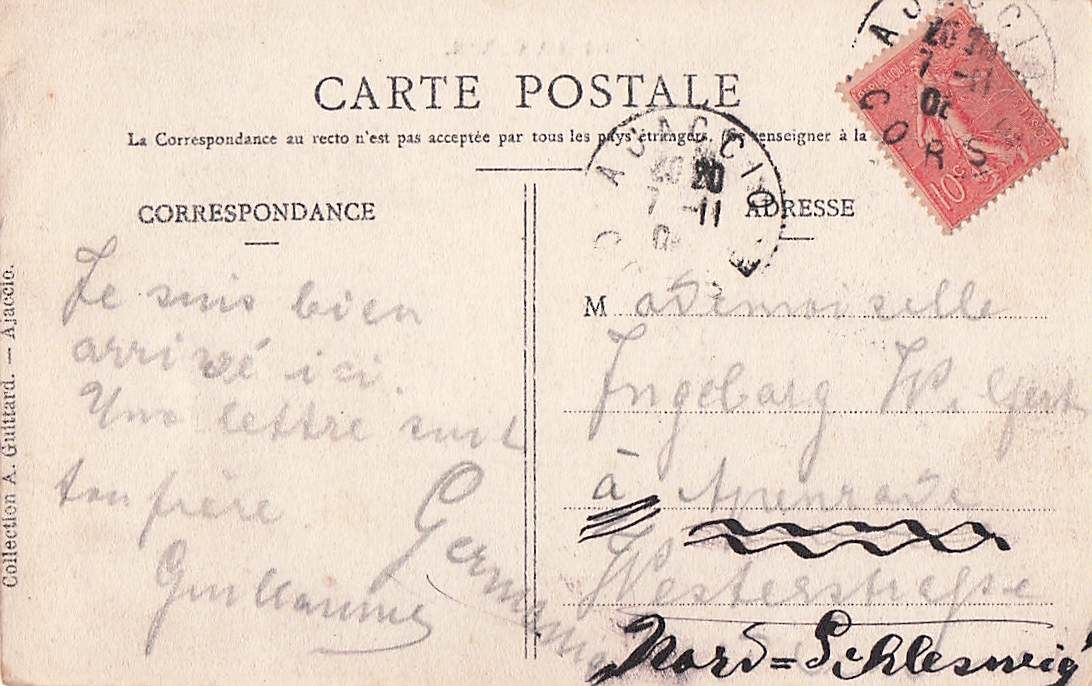 CARTE POSTALE
La Correspondance au recto n'est pas acceptée par tous les pays étrangers. (Se renseigner à la
CORRESPONDANCE
ADRESSE
Je suis bien
arrivé ici.
Une lettre suit
ton frère
Guillaume
Mademoiselle
Ingeborg W.
à Apenrade
Westerstraße
Nord=Schleswig
Germania
Collection A. Guittard. — Ajaccio.
AJACCIO
20
7 -11
AJACCIO
CORSE
7 -11
10c